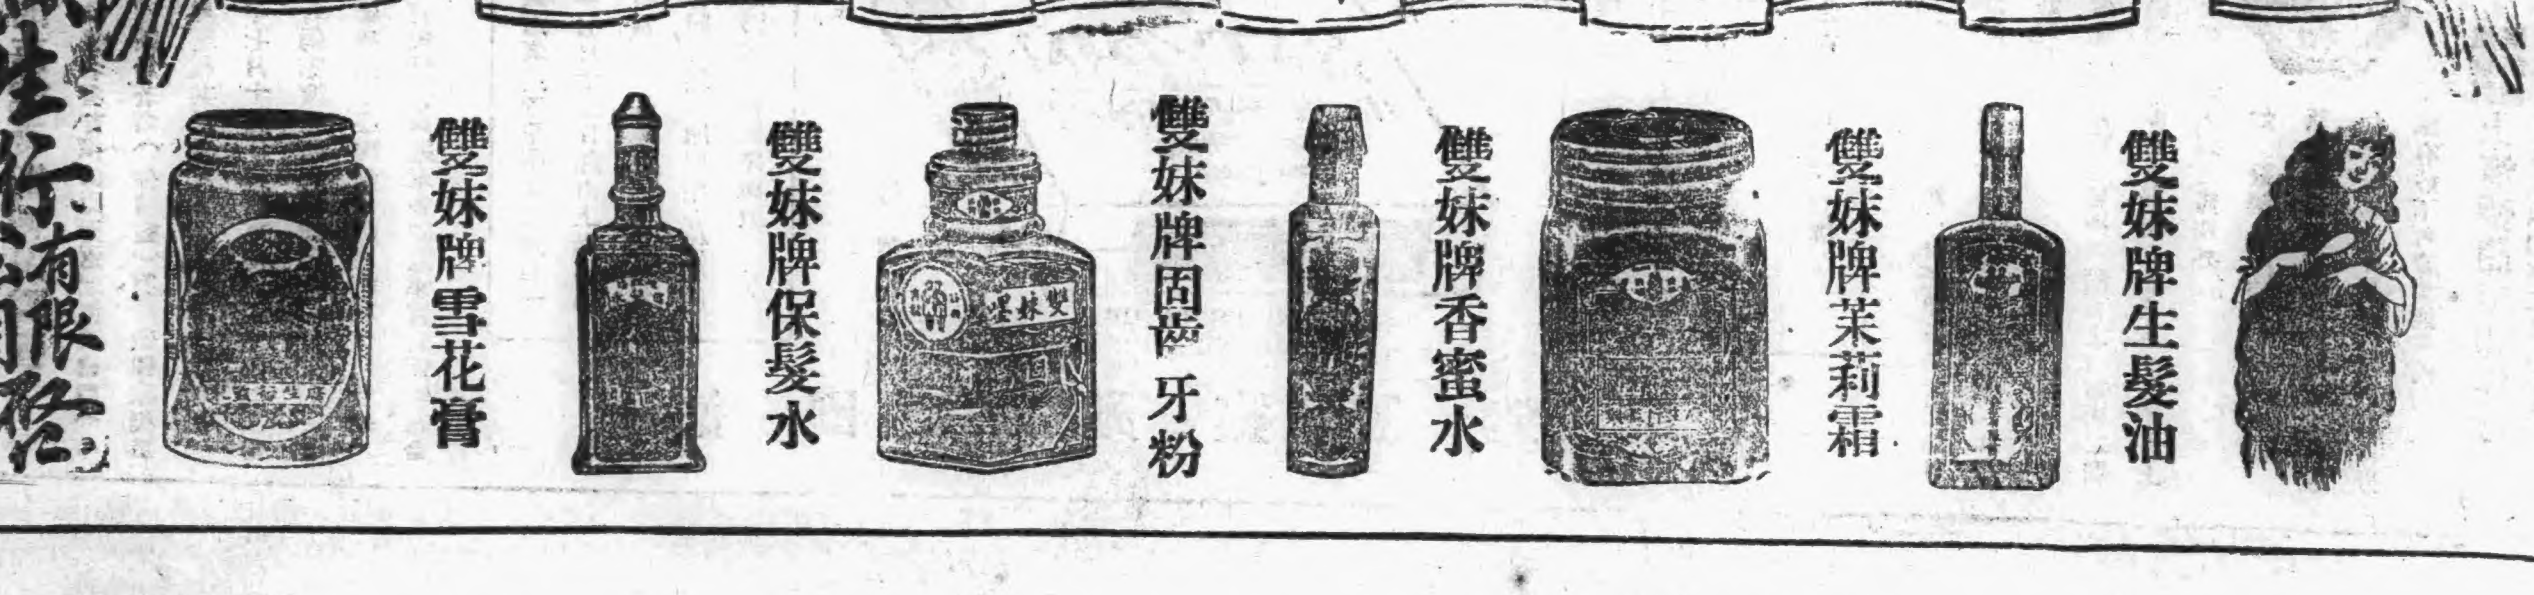 雙妹牌生髮油
雙妹牌茉莉霜
雙妹牌香蜜水
雙妹牌固齒牙粉
雙妹嚜
雙妹牌保髮水
雙妹牌雪花膏
生行有限公司啓